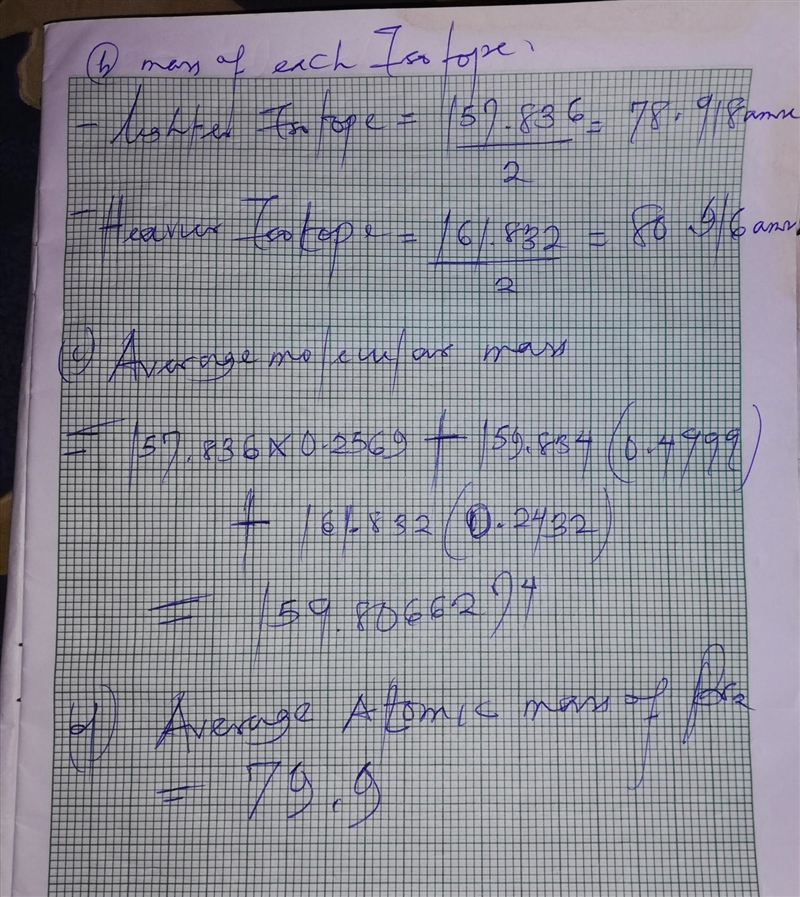 (b) mass of each Isotope.
- lighter Isotope = 157.836/2 = 78.918amu
- Heavier Isotope = 161.832/2 = 80.916amu
(c) Average molecular mass
= 157.836 x 0.2569 + 159.834 (0.4999)
+ 161.832 (0.2432)
= 159.8066274
d) Average Atomic mass of Br2
= 79.9